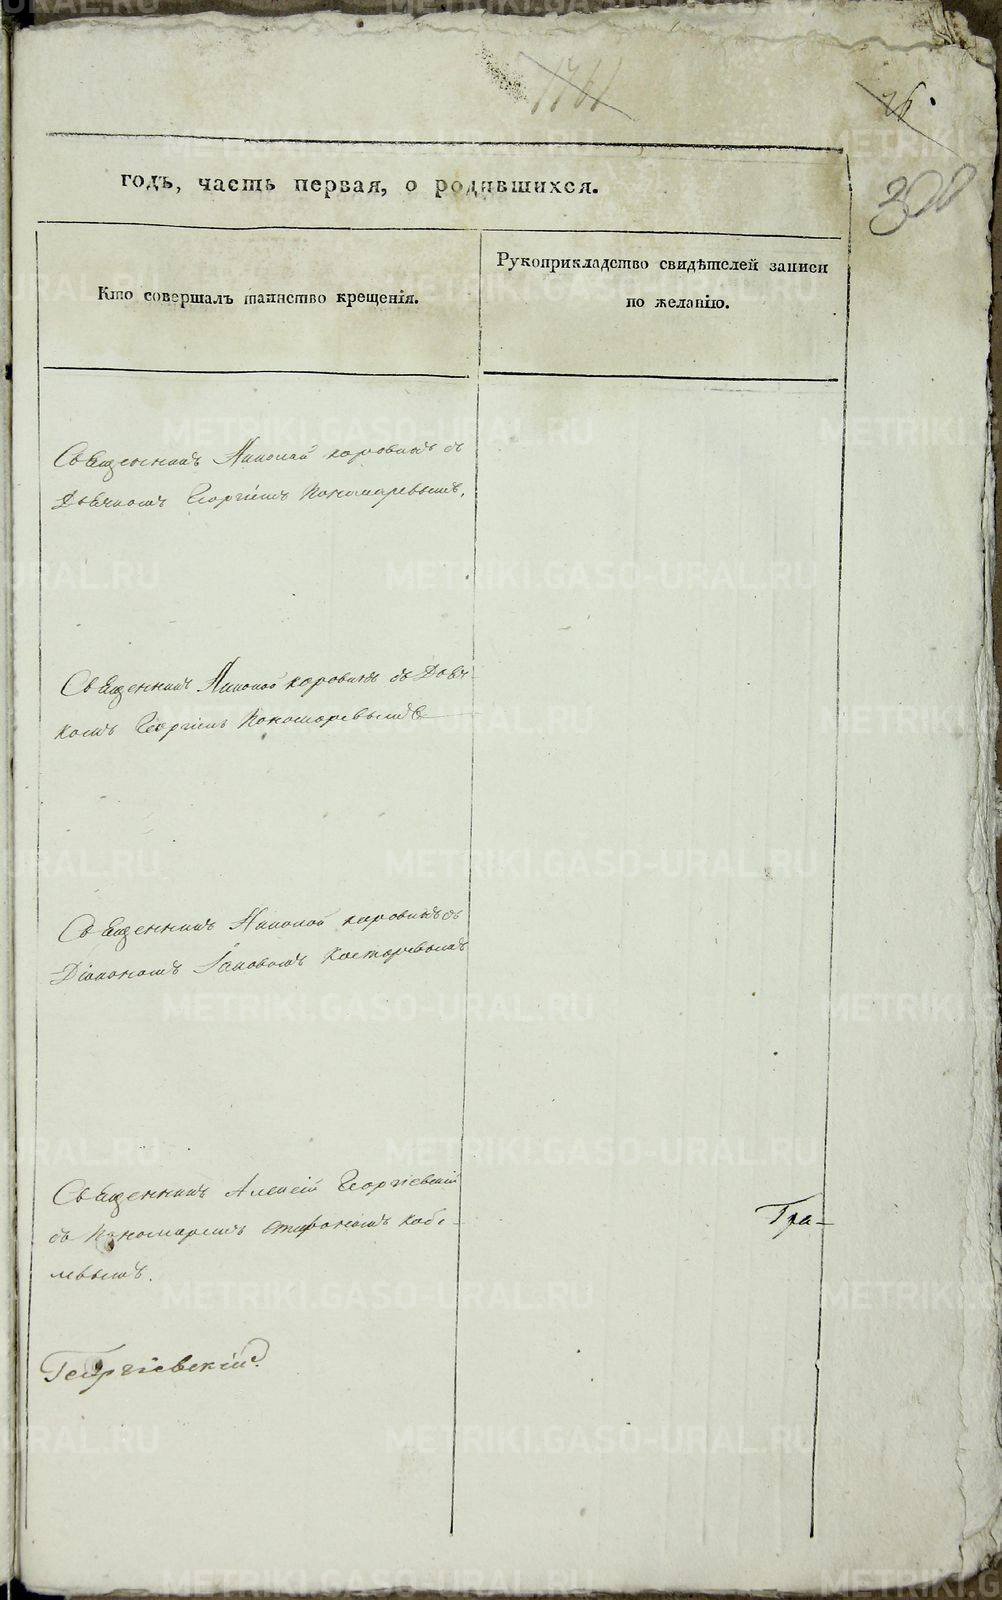 1761
76.
300
годъ, часть первая, о родившихся.
Кто совершалъ таинство крещенія.
Рукоприкладство свидѣтелей записи
по желанію.
Священникъ Николай Коровинъ съ
Дьячкомъ Георгіемъ Пономаревымъ.
Священникъ Николай Коровинъ съ Дьяч-
комъ Георгіемъ Пономаревымъ
Священникъ Николай Коровинъ съ
Діакономъ Іаковомъ
Священникъ Алексій Георгіевскій
съ Пономаремъ Стефаномъ Кобе-
левымъ.
Гра-
Георгіевскій.
METRIKI.GASO-URAL.RU